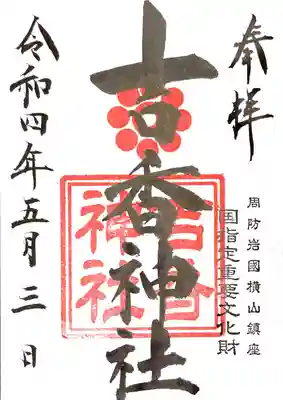 奉拝
周防岩國横山鎮座
国指定重要文化財
吉香神社
吉香
神社
令和四年五月三日